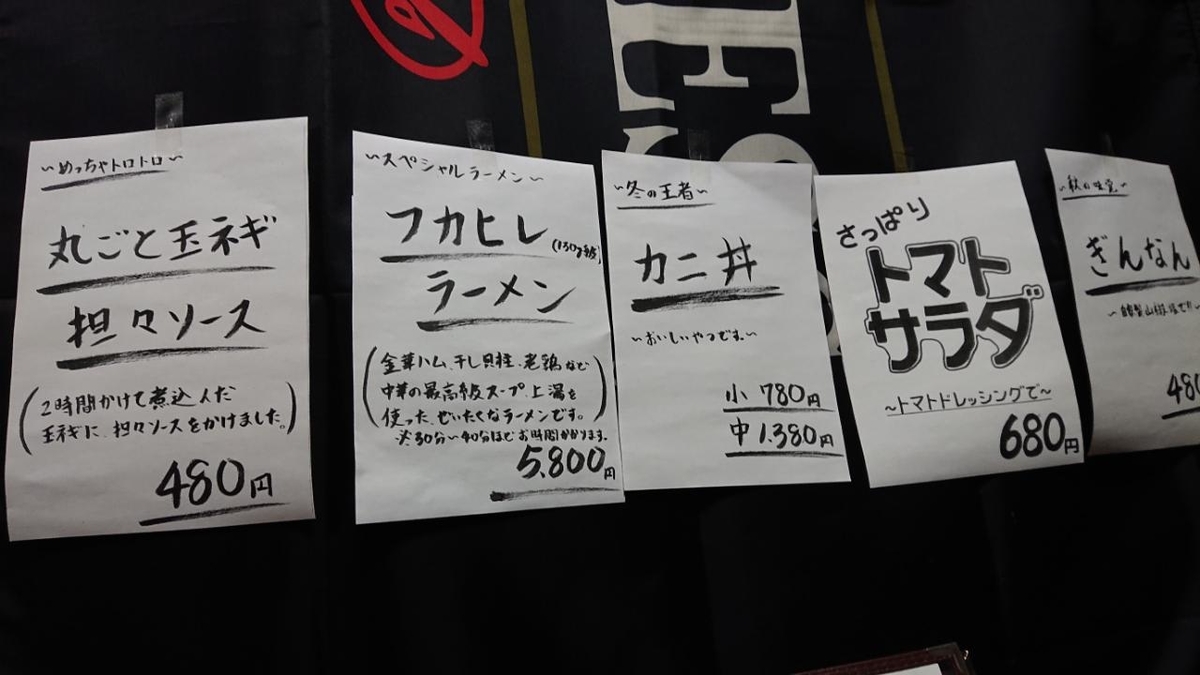 ~めっちゃトロトロ~
丸ごと玉ネギ
担々ソース
(2時間かけて煮込んだ
玉ネギに、担々ソースをかけました。)
480円
~スペシャルラーメン~
フカヒレ
ラーメン
(金華ハム、干し貝柱、老鶏など
中華の最高級スープ、上湯を
使った、ぜいたくなラーメンです。)
※30分~40分ほどお時間かかります。
5,800円
~冬の王者~
カニ丼
~おいしいやつです。~
小 780円
中 1,380円
さっぱり
トマト
サラダ
~トマトドレッシングで~
680円
~秋の味覚~
ぎんなん
480